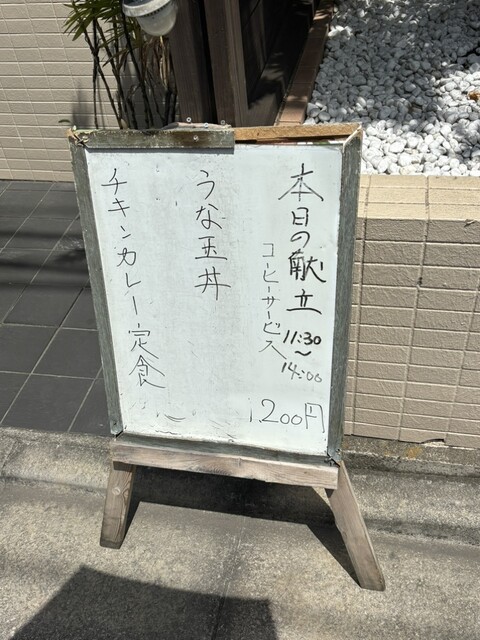 本日の献立
11:30
〜
14:00
コーヒーサービス
1.200円
うな玉丼
チキンカレー定食